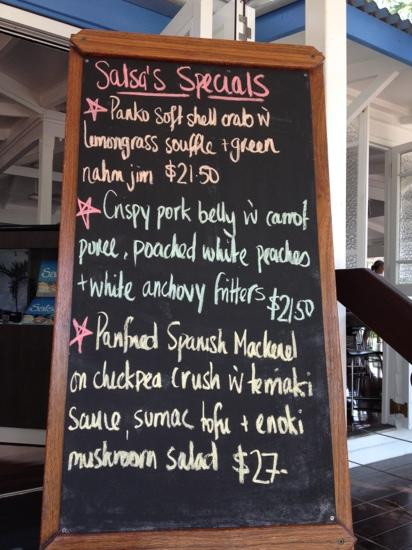 Salsa's Specials
Panko soft shell crab w
lemongrass souffle + green
nahm jim $21.50
Crispy pork belly w carrot
puree, poached white peaches
+ white anchovy fritters $21.50
Panfried Spanish Mackerel
on chickpea crush w temaki
sauce, sumac tofu + enoki
mushroom salad $27-